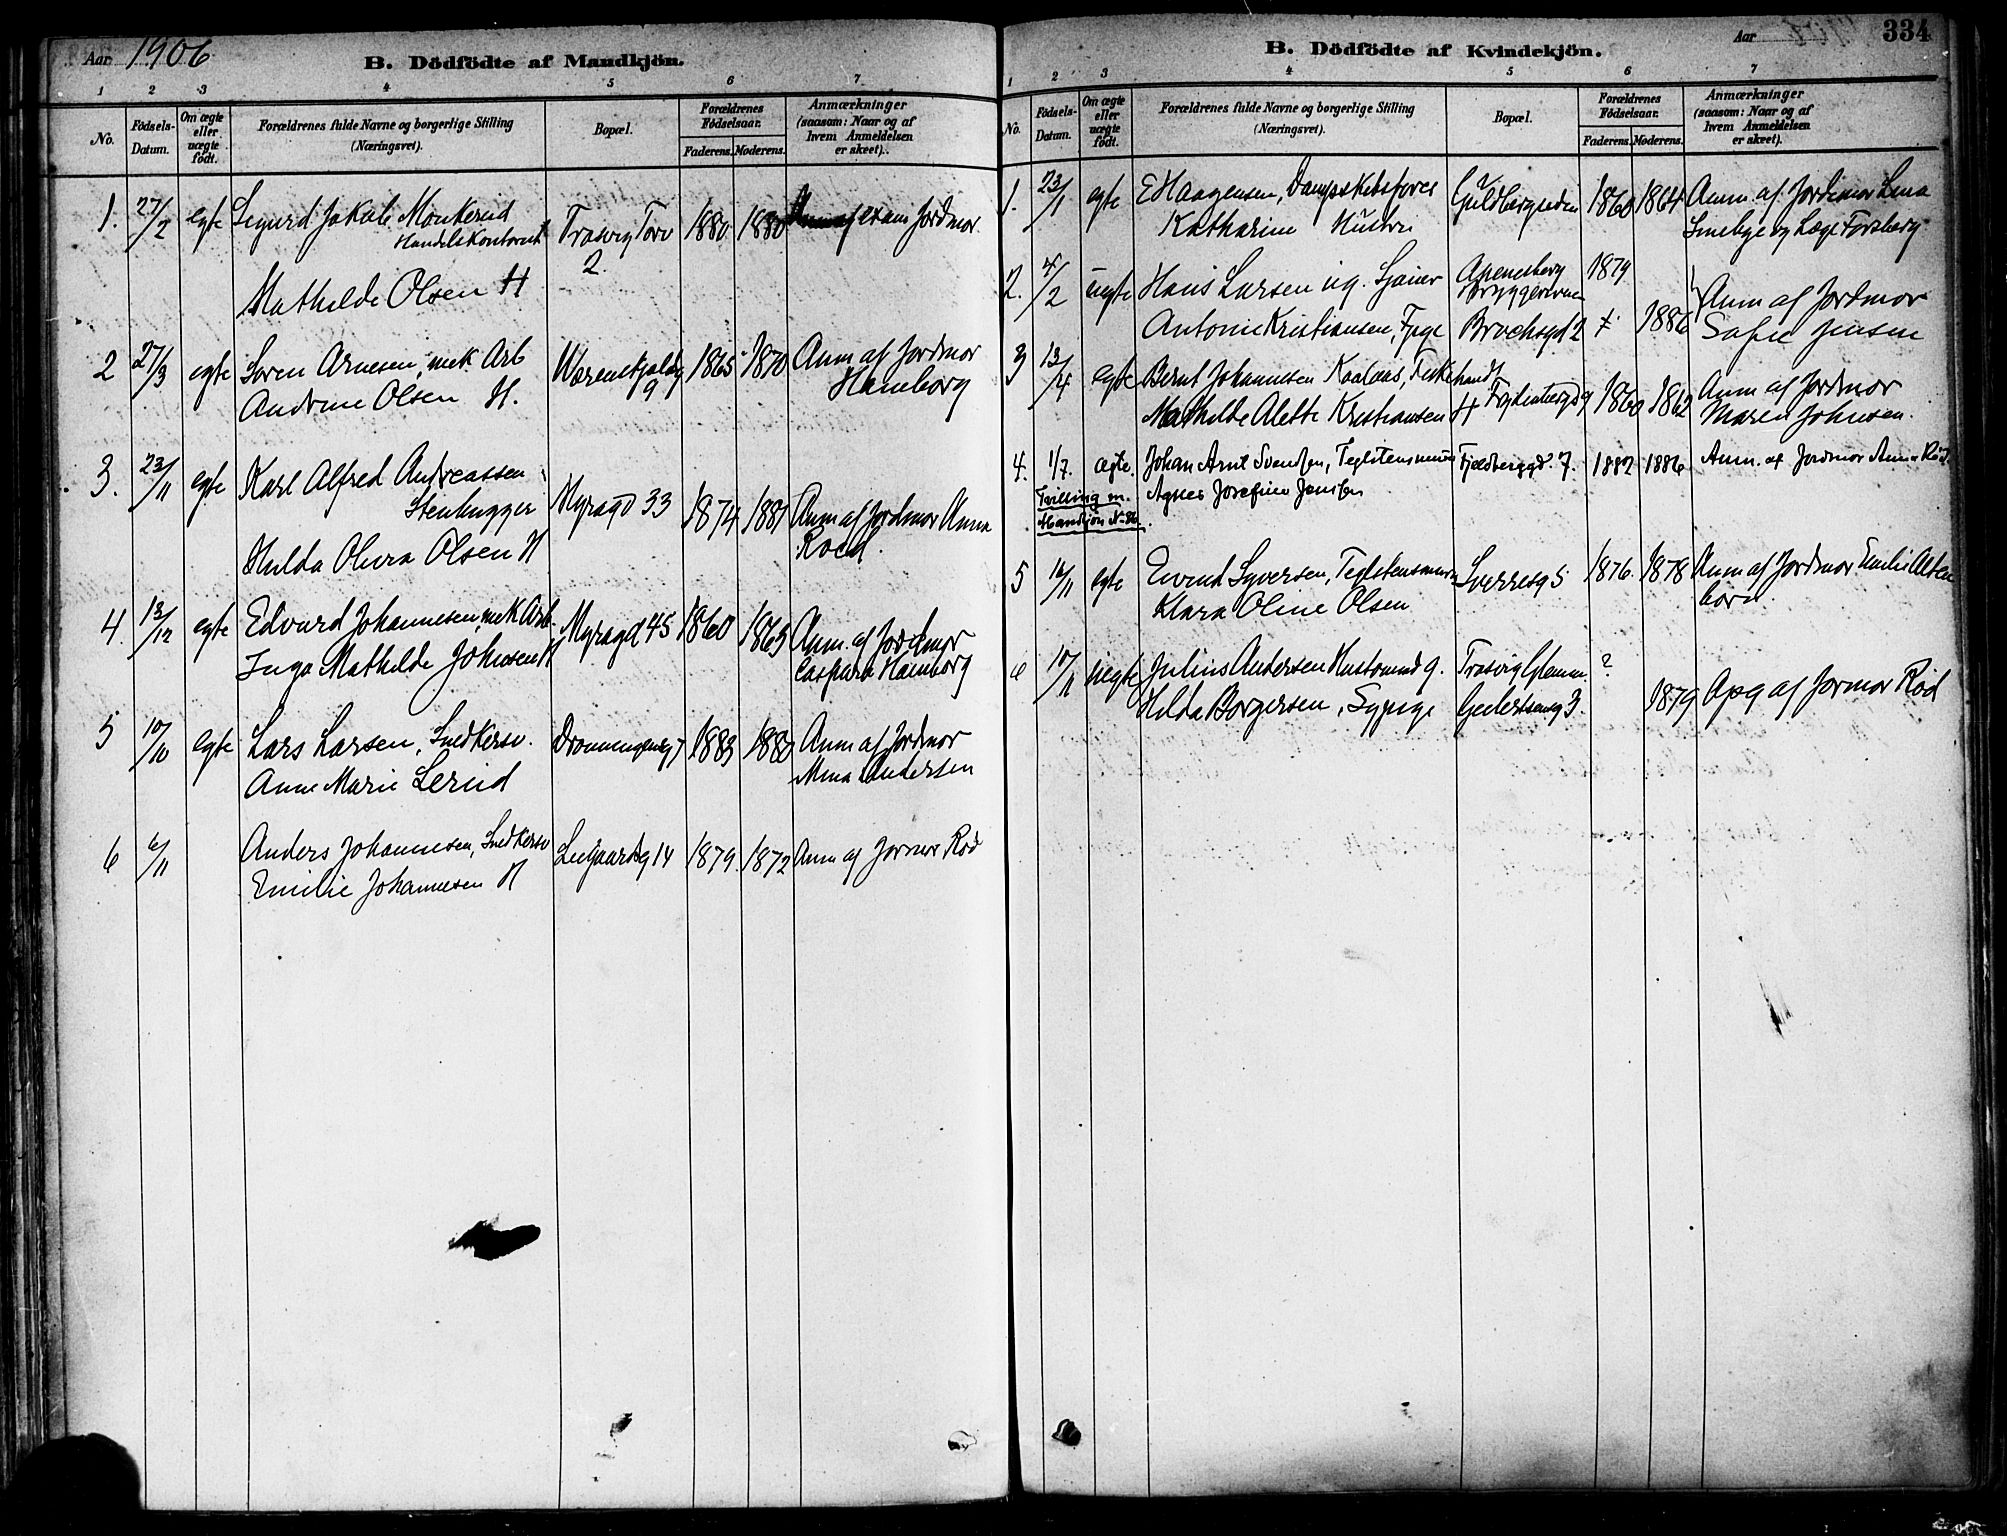 Aar 1906
B. Dödfödte af Mandkjön.
1 2 3 4 5 6 7
No.
Födsels-Datum.
Om ægte eller uægte födt.
Forældrenes fulde Navne og borgerlige Stilling
(Næringsvei).
Bopæl.
Forældrenes Födselsaar.
Faderens. Moderens.
Anmærkninger
(saasom: Naar og af
hvem Anmeldelsen
er skeet).
1. 27/2 egte Sigurd Jakob Monkerud
Handelskontorist Trosvig Torv 2. 1880 1880 exam Jordmor
Mathilde Olsen H
2 27/3 egte Søren Arnesen, mek. Arb 9 1865 1870 Anm af Jordmor
Andrine Olsen H. Hamborg
3. 23/11 egte Karl Alfred Andreassen
Stenhugger Myragd 33 1874 1881 Anm af Jordmor Anna
Hulda Olivia Olsen H Roed.
4. 13/12 egte Edvard Johannesen, mek Arb. Myragd 45 1860 1865 Anm. af Jordmor
Inga Mathilde Johnsen H Caspara Hamborg
5 10/10 egte Lars Larsen, Snedkersv. Dronningensg 7 1883 1880 Anm af Jordmor
Anne Marie Lerud Mina Andersen
6 6/11 Anders Johannesen, Snedkersv 14 1879 1872 Anm af Jormor Rød
Emilie Johannesen H
334
Aar
B. Dödfödte af Kvindekjön.
1 2 3 4 5 6 7
No.
Födsels-Datum.
Om ægte eller uægte födt.
Forældrenes fulde Navne og borgerlige Stilling
(Næringsvei).
Bopæl.
Forældrenes Födselsaar.
Faderens. Moderens.
Anmærkninger
(saasom: Naar og af
hvem Anmeldelsen
er skeet).
1. 23/1 egte E Haagensen, Dampskibsfører Guldbergsiden 1860 1864 Anm. af Jordemor Lina
Katharine Hustru Smebye og Læge Forsberg
2. 4/2 uegte Hans Larsen ug. Sjauer Apenesberg 1879
Bryggeriveien Anm af Jordmor
Antonie Kristiansen, Brochsgd 2 1886 Sofie Jensen
3 13/4 egte Bernt Johannesen Kaalaas, Fiskehandl
Mathilde Alette Kristiansen H 1860 1862 Anm af Jordmor
Maren Johnsen.
4. 1/7. ægte. Johan Arnt Svendsen, Teglstensmurer Fjeldberggd. 7. 1882 1886 Anm. af Jordmor Anna Rød
Tvilling m. Agnes Josefine Jensen
Mandkjøn No
5 16/11 egte Eivind Syversen, Teglstensmurer Sverresg 5 1876. 1878 Anm af Jordmor Emilie Alten
Klara Oline Olsen born
6 10/11 uegte Julius Andersen Trosvig Glemm. ?
Hilda Borgersen, Sypige 3. 1879 Opg af Jormor Rød